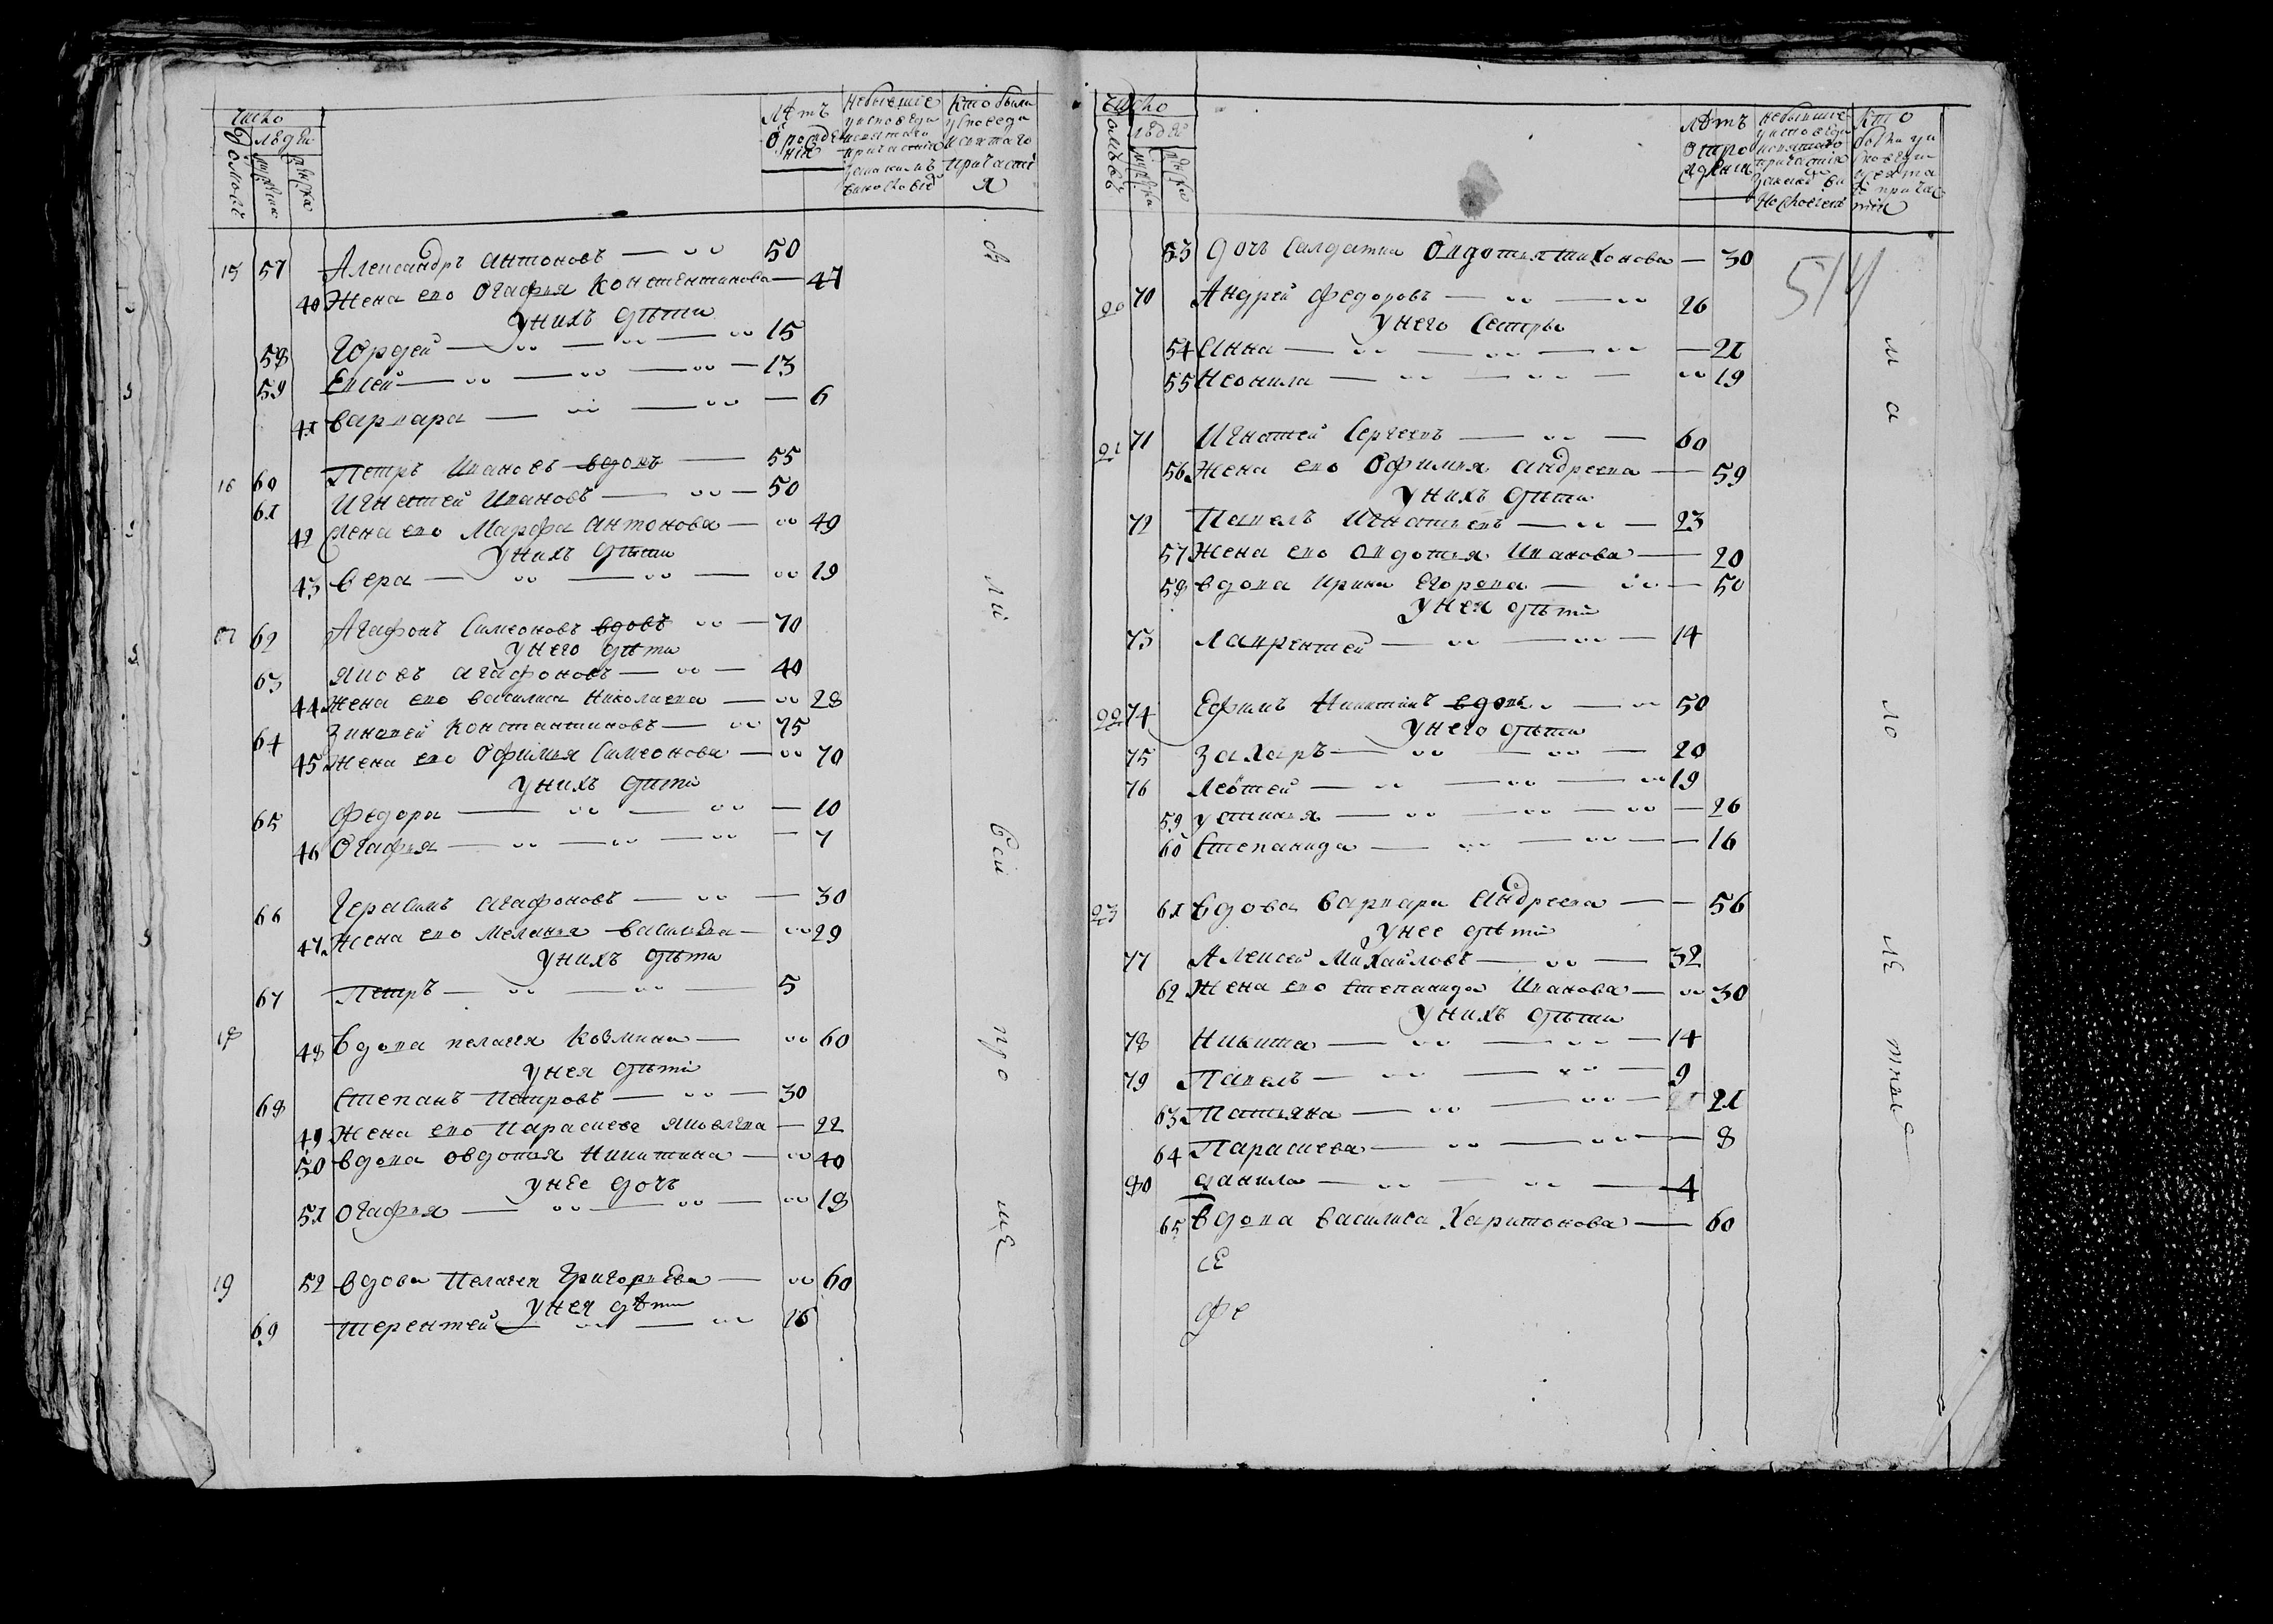 число
людей
домовъ
Лѣтъ
от рожде
нія
Небывшіе
у исповеди
и святаго
причастія
за какимъ
Кто были
у исповеди
и святаго
причасті
я
15 57 Александръ антоновъ 50
40 Жена его Огафия Констентинова 47
У нихъ дѣти
58 Гордей 15
59 Евсей 13
41 варвара 6
16 60 Петръ Ивановъ вдовъ 55
61 Игнатей Ивановъ 50
42 Жена его Марфа Антонова 49
У нихъ дѣти
43 вера 19
17 62 Агафонъ Симеоновъ вдовъ 70
У него дѣти
63 яковъ агафоновъ 40
44 жена его василиса Николаева 28
64 Зиновей Константиновъ 75
45 жена его Офимья Симеонова 70
У нихъ дѣти
65 Федоръ 10
46 Огафия 7
66 Герасимъ агафоновъ 30
47 Жена его меланья васильева 29
У нихъ дѣти
67 Петръ 5
18 48 вдова пелагея Козмина 60
У нея дѣти
68 Степанъ Петровъ 30
49 Жена его Парасиева яковлева 22
50 вдова овдотия Никитина 40
У нее дочь
51 Огафия 18
19 52 вдова Пелагея Григорьева 60
У нея дѣти
69 терентей 16
число
людей
домовъ
Лѣтъ
от ро
жденія
Небывшіе
у исповеди
и святаго
причастія
Кто
были у и
споведи
и свята
го причас
тія
514
53 дочь Салдатка Овдотья тихонова 30
20 70 Андрей федоровъ 26
У него Сестры
54 Анна 21
55 Неонила 19
21 71 Игнатей Сергеевъ 60
56 Жена его Офимия андреева 59
У нихъ дѣти
72 Павелъ Игнатьевъ 23
57 Жена его овдотья Иванова 20
58 вдова Ирина Егорова 50
У нея дѣти
73 Лаврентей 14
22 74 Ефимъ Никитинъ вдовъ 50
У него дѣти
75 Захаръ 20
76 Леотей 19
59 устинья 26
60 Степанида 16
23 61 вдова варвара Андреева 56
У нее дѣти
77 Алексей Михайловъ 32
62 Жена его Степанида Иванова 30
У нихъ дѣти
78 Никита 14
79 Павелъ 9
63 Татьяна 21
64 Парасиева 8
80 данила 4
65 вдова василиса Харитонова 60
се
фе